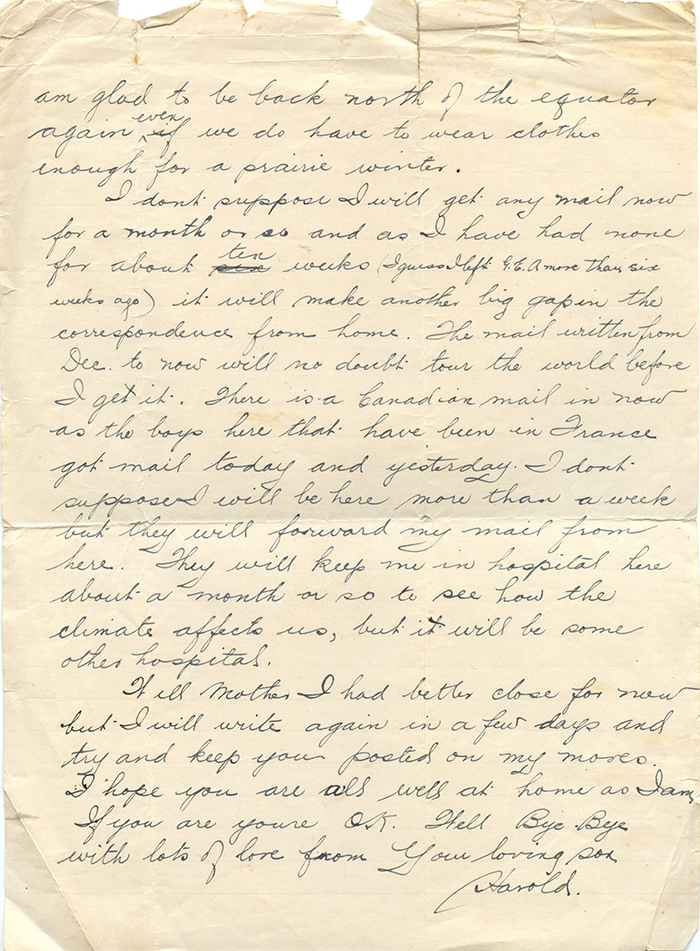 am glad to be back north of the equator
again even if we do have to wear clothes
enough for a prairie winter.
I dont suppose I will get any mail now
for a month or so and as I have had none
for about six ten weeks (I guess I left G.E.A more than six
weeks ago) it will make another big gap in the
correspondence from home. The mail written from
Dec. to now will no doubt tour the world before
I get it. There is a Canadian mail in now
as the boys here that have been in France
got mail today and yesterday. I dont
suppose I will be here more than a week
but they will forward my mail from
here. They will keep me in hospital here
about a month or so to see how the
climate affects us, but it will be some
other hospital.
Well Mother I had better close for now
but I will write again in a few days and
try and keep you posted on my moves.
I hope you are all well at home as I am
If you are youre O.K. Well Bye Bye
with lots of love from Your loving son
Harold.